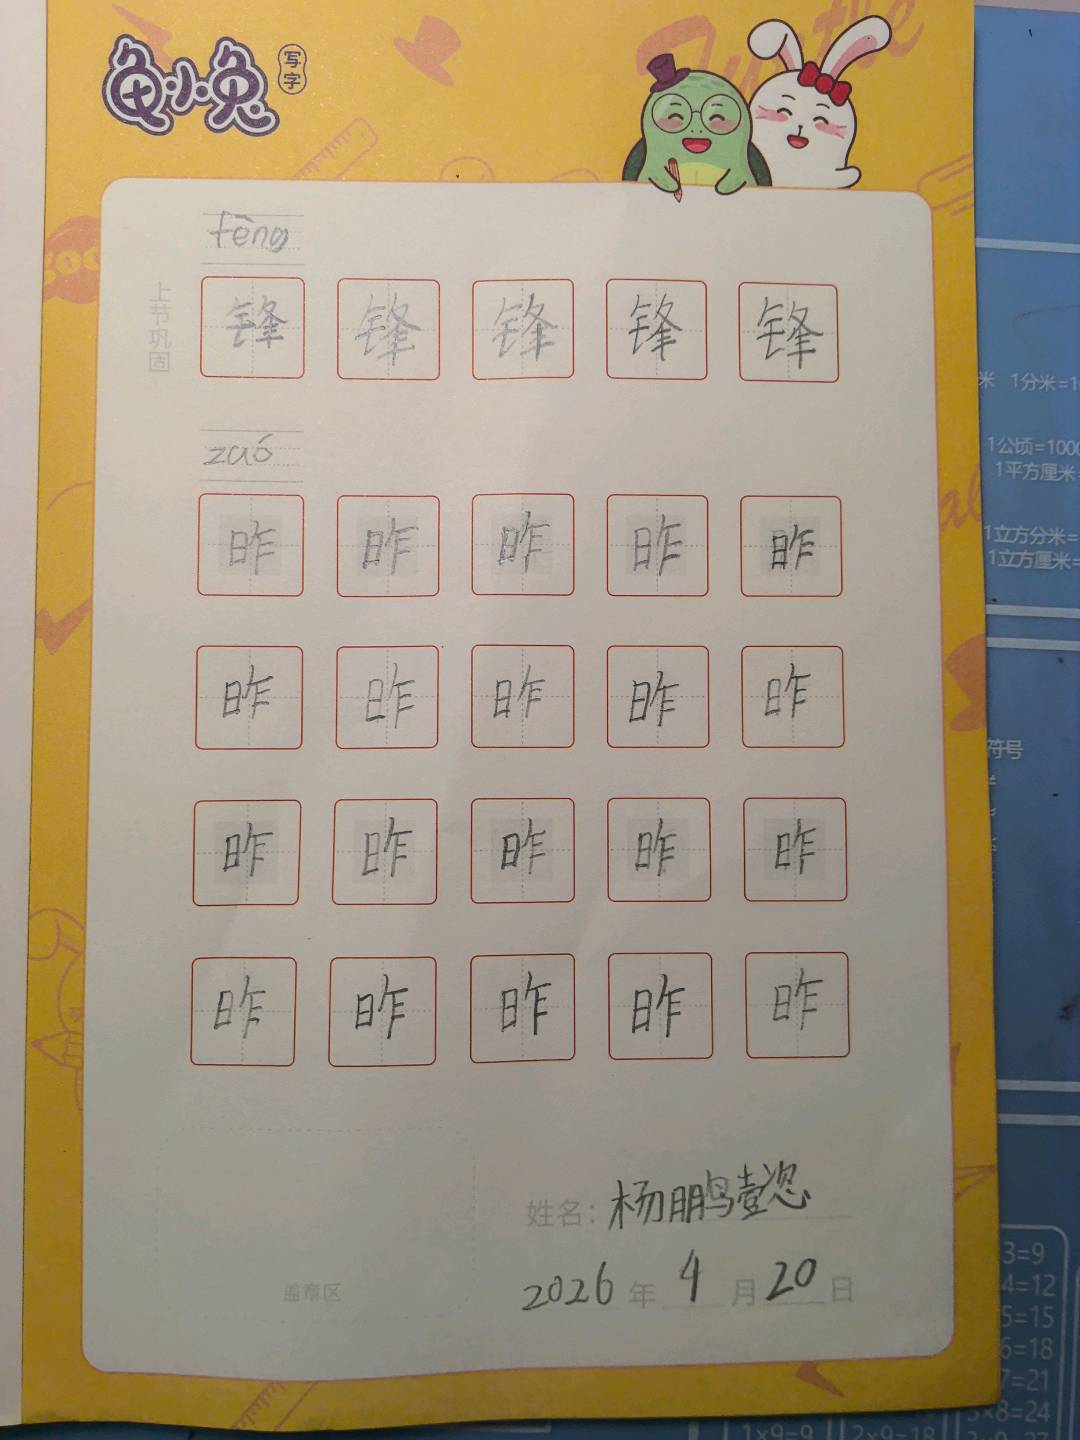 龟小兔 写字
fēng
上节巩固
锋 锋 锋 锋 锋
zuó
昨 昨 昨 昨 昨
昨 昨 昨 昨 昨
昨 昨 昨 昨 昨
昨 昨 昨 昨 昨
姓名：杨鹏懿
盖章区
2026年4月20日
米 1分米=1
1公顷=1000
1平方厘米=
1立方分米=
1立方厘米=
符号
3=9
4=12
5=15
6=18
7=21
3×8=24
1×9=9 2×9=18